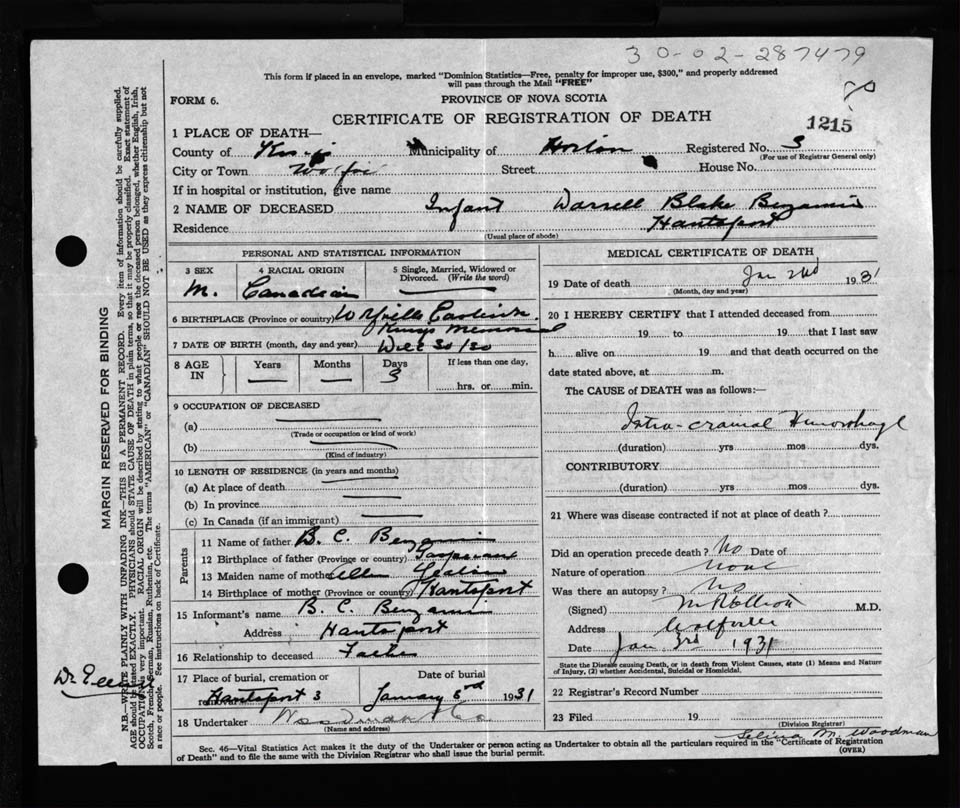 30-02-287479
This form if placed in an envelope, marked "Dominion Statistics—Free, penalty for improper use, $300," and properly addressed
will pass through the Mail "FREE"
FORM 6.
PROVINCE OF NOVA SCOTIA
CERTIFICATE OF REGISTRATION OF DEATH
1215
1 PLACE OF DEATH—
County of Kings Municipality of Horton Registered No. 3
(For use of Registrar General only)
City or Town Street House No.
If in hospital or institution, give name
2 NAME OF DECEASED Infant Darrell Blake Benjamin
Residence Hantsport
(Usual place of abode)
PERSONAL AND STATISTICAL INFORMATION
3 SEX 4 RACIAL ORIGIN 5 Single, Married, Widowed or Divorced. (Write the word)
M. Canadian
6 BIRTHPLACE (Province or country) Wolfville
Kings Memorial
7 DATE OF BIRTH (month, day and year) Dec 30/30
8 AGE IN Years Months Days If less than one day,
3 hrs. or min.
9 OCCUPATION OF DECEASED
(a)
(Trade or occupation or kind of work)
(b)
(Kind of industry)
10 LENGTH OF RESIDENCE (in years and months)
(a) At place of death
(b) In province
(c) In Canada (if an immigrant)
Parents
11 Name of father B. C. Benjamin
12 Birthplace of father (Province or country) Gaspereau
13 Maiden name of mother Ellen
14 Birthplace of mother (Province or country) Hantsport
15 Informant's name B. C. Benjamin
Address Hantsport
16 Relationship to deceased Father
17 Place of burial, cremation or removal Date of burial
Hantsport January 1931
18 Undertaker Woodman & Co
(Name and address)
MEDICAL CERTIFICATE OF DEATH
19 Date of death Jan 2nd 1931
(Month, day and year)
20 I HEREBY CERTIFY that I attended deceased from
19 to 19 that I last saw
h alive on 19 and that death occurred on the
date stated above, at m.
The CAUSE of DEATH was as follows:—
Intra-cranial Hemorrhage
(duration) yrs mos dys.
CONTRIBUTORY
(duration) yrs mos dys.
21 Where was disease contracted if not at place of death?
Did an operation precede death? No Date of
Nature of operation none
Was there an autopsy? No
(Signed) M.D.
Address Wolfville
Date Jan 3rd 1931
State the Disease causing Death, or in death from Violent Causes, state (1) Means and Nature
of Injury, (2) whether Accidental, Suicidal or Homicidal.
22 Registrar's Record Number
23 Filed 19
(Division Registrar)
Selina M. Woodman
Sec. 46—Vital Statistics Act makes it the duty of the Undertaker or person acting as Undertaker to obtain all the particulars required in the "Certificate of Registration
of Death" and to file the same with the Division Registrar who shall issue the burial permit.
(OVER)
MARGIN RESERVED FOR BINDING
N.B.—WRITE PLAINLY WITH UNFADING INK—THIS IS A PERMANENT RECORD. Every item of information should be carefully supplied.
AGE should be stated EXACTLY. PHYSICIANS should STATE CAUSE OF DEATH in plain terms, so that it may be properly classified. Exact statement of
OCCUPATION is very important. RACIAL ORIGIN will be described by stating to what people or race the deceased person belonged, whether English, Irish,
Scotch, French, German, Russian, Ruthenian, etc. The terms "AMERICAN" or "CANADIAN" SHOULD NOT BE USED as they express citizenship but not
a race or people. See instructions on back of Certificate.